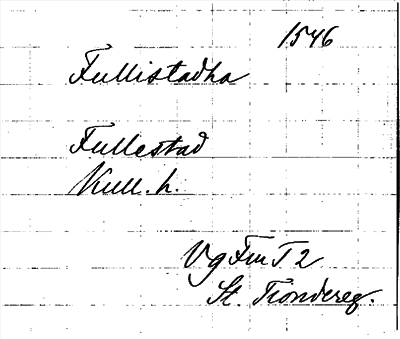 1546
Fullistadha
Fullestad
Kull. h.
Vg Fru T 2
St. Tiondereg.